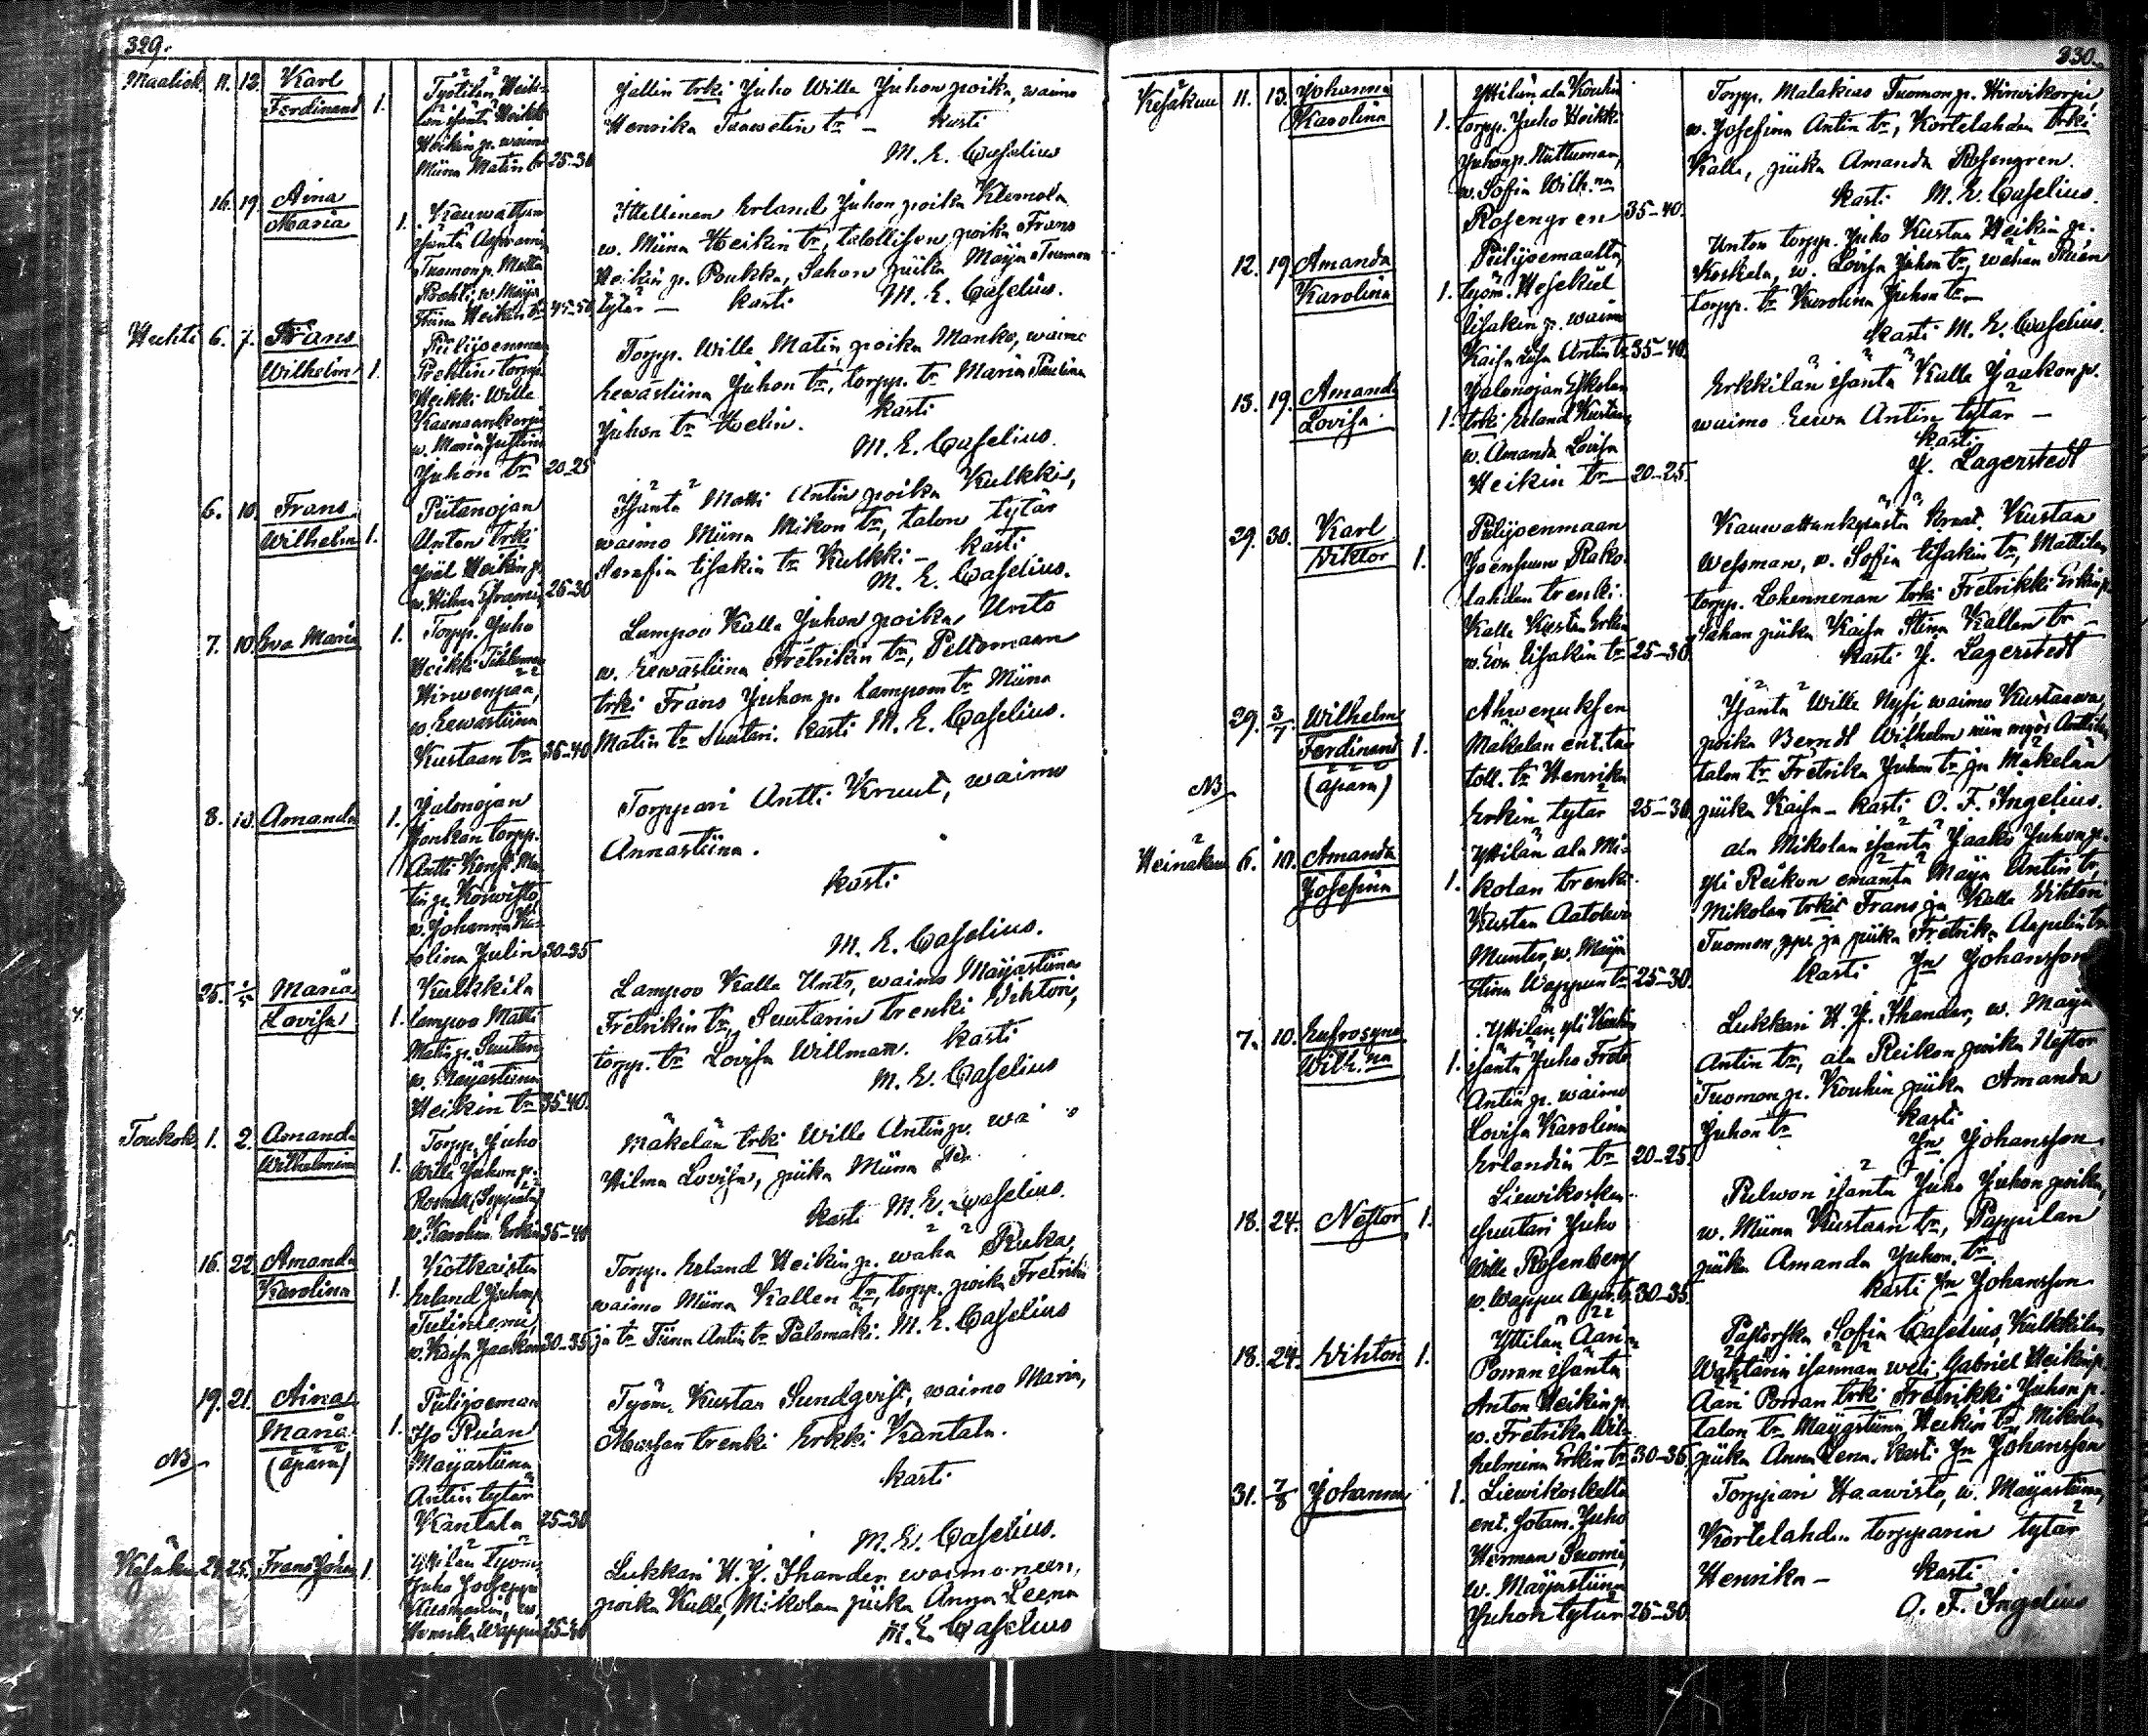 329.
Maalisk. 11. 13. Karl
Ferdinand 1.
Heikin p. waimo
Miina Matin tr 25-30
jallin trki Juho Wille Juhon poika, waimo
Henrika Taawetin tr - Kasti
M. E. Caselius
16. 19. Aina
Maria 1.
Tuomon p. Matti
w. Maija
Stiina Heikin tr 45-50
Ittellinen Erland Juhon poika Klemola
w. Miina Heikin tr, talollisen poika Frans
Heikin p. Pukka, Sahan piika Maija Tuomon
tytär - Kasti M. E. Caselius.
Huhti 6. 7. Frans
Wilhelm 1.
Piilijoenmaan
Prehtin torpp.
Heikki Wille
w. Maria Justina
Juhon tr 20-25
Torpp. Wille Matin poika Manko, waimo
Eewastiina Juhon tr, torpp. tr Maria Paulina
Juhon tr Helin. Kasti
M. E. Caselius.
6. 10. Frans
Wilhelm 1.
Piitanojan
Anton trki
Joel Heikin p.
w. Hilma Efraimin 25-30
Isäntä Matti Antin poika Kulkki,
waimo Miina Mikon tr, talon tytär
Serafia Iisakin tr Kulkki - Kasti
M. E. Caselius.
7. 10. Eva Maria 1.
Torpp. Juho
Heikki
Hirwenpää,
w. Eewastiina
Kustaan tr 35-40
Lampoo Kalla Juhon poika Unto
w. Eewastiina Fretrikin tr, Peltomaan
trki Frans Juhon p. Lampoon tr Miina
Matin tr Suutari. Kasti M. E. Caselius.
8. 13. Amanda 1.
Jalonojan
Honkan torpp.
Antti
tin p. Koiwisto,
w. Johanna Ka-
olina Julin 30-35
Torppari Antti Kruut, waimo
Annastiina.
Kasti
M. E. Caselius.
25. 1/5 Maria
Lovisa 1.
Kulkkila
Lampoo Matti
Matin p. Suutari
w. Maijastiina
Heikin tr 35-40.
Lampoo Kalla Unto, waimo Maijastiina
Fretrikin tr, Suutarin trenki Wihtori,
torpp. tr Lovisa Willman. Kasti
M. E. Caselius
Toukok. 1. 2. Amanda
Wilhelmina 1.
Torpp. Juho
Wille Juhon p.
w. Karolina Erkin 35-40
Mäkelän trki Wille Antin p. wai o
Hilma Lovisa, piika Miina
Kasti M. E. Caselius.
16. 22. Amanda
Karolina 1.
Kotkaisten
Erland Juhon p.
Tuliniemi,
w. Kaisa Jaakon 30-35
Torpp. Erland Heikin p. wähä Ruka,
waimo Miina Kallen tr, torpp. poika Fretrikki
ja tr Tiina Antin tr Palomäki. M. E. Caselius
19. 21. Aina
Maria 1.
(äpärä)
NB
Piilijoeman
Iso Riian
Maijastiina
Antin tytär
Kantala 25-30
Työm. Kustaa Sundqvist, waimo Maria,
trenki Erkki Kantala.
Kasti
M. E. Caselius.
24. 25. Frans Johan 1.
Yttilän työm.
Juho Joosepp
Henrika Wappu 25-30
Lukkari H. J. Thander waimo neen,
poika Kalle, Mikolan piika Anna Leena
M. E. Caselius
330.
Kesäkuu 11. 13. Johanna
Karolina 1.
Yttilän ala Kouhin
torpp. Juho Heikki
Juhon p. Huttuman,
w. Sofia Wilh.na
Rosengren 35-40.
Torpp. Malakias Tuomon p. Hirwikorpi
w. Josefina Antin tr, Kortelahden trki
Kalle, piika Amanda Rosengren.
Kasti M. E. Caselius.
12. 19. Amanda
Karolina 1.
Piilijoemaalta
työm. Hesekiel
Iisakin p. waimo
Kaisa Antin tr 35-40.
Unton torpp. Juho Kustaa Heikin p.
Koskela, w. Lovisa Juhon tr, wähän Riian
torpp. tr Karolina Juhon tr.
Kasti M. E. Caselius.
13. 19. Amanda
Lovisa 1.
Jalonojan Eskolan
trki Erland Kustaan
w. Amanda Lovisa
Heikin tr 20-25.
Erkkilän isäntä Kalle Jaakon p.
waimo Eewa Antin tytär -
Kasti
J. Lagerstedt
29. 30. Karl
Viktor 1.
Piilijoenmaan
Joensuun Rako-
lahden trenki
Kalle Kustaa Erkin
w. Eva Iisakin tr 25-30
Kauwattunkylästä Kustaa
Wessman, w. Sofia Iisakin tr, Mattilan
torpp. Lohennenan trki Fretrikki Erkin p.
Sahan piika Kaisa Stina Kallen tr -
Kasti J. Lagerstedt
29. 3/7 Wilhelm
Ferdinand 1.
(äpärä)
NB
Ahwenuksen
Mäkelän ent. ta-
loll. tr Henrika
Erkin tytär 25-30.
Isäntä Wille Nysi waimo Kustaawa,
poika Berndt Wilhelm niin myös Anttilan
talon tr Fretrika Juhon tr ja Mäkelän
piika Kaisa - Kasti O. F. Ingelius.
Heinäkuu 6. 10. Amanda
Josefina 1.
Yttilän ala Mi-
kolan trenki
Kustaa Aatolewi
Munter, w. Maija
Stina Wappun tr 25-30.
ala Mikolan isäntä Jaako Juhon p.
yli Reikon emäntä Maija Antin tr,
Mikolan trkit Frans ja Kalle Viktori
Tuomon pp. ja piika Fretrika Aapelin tr
Kasti Jn Johansson
7. 10. Eufrosyne
Wilh.na 1.
Yttilän yli Kouhin
isäntä Juho Fretr.
Antin p. waimo
Lovisa Karolina
Erlandin tr 20-25.
Lukkari H. J. Thander, w. Maija
Antin tr, ala Reikon poika Nestor
Tuomon p. Kouhin piika Amanda
Juhon tr Kasti
Jn Johansson
18. 24. Nestor 1.
Liewikosken
Suutari Juho
Wille Rosenberg
w. Wappu tr 30-35.
Pulwon isäntä Juho Juhon poika,
w. Miina Kustaan tr, Pappilan
piika Amanda Juhon tr.
Kasti Jn Johansson
18. 24. Wihtori 1.
Yttilän Aari-
Porran isäntä
Anton Heikin p.
w. Fretrika Wil-
helmina Erkin tr 30-35.
Pastorska Sofia Caselius, Kulkkilan
Wahtarin isännän weli Gabriel Heikin p.
Aari Porran trki Fretrikki Juhon p.
talon tr Maijastiina Heikin tr Mikolan
piika Anna Leena. Kasti Jn Johansson
31. 7/8 Johanna 1.
Liewikoskelta
ent. sotam. Juho
Herman Suomi,
w. Maijastiina
Juhon tytär 25-30.
Torppari Haawisto, w. Maijastiina,
Kortelahden torpparin tytär
Henrika - Kasti
O. F. Ingelius